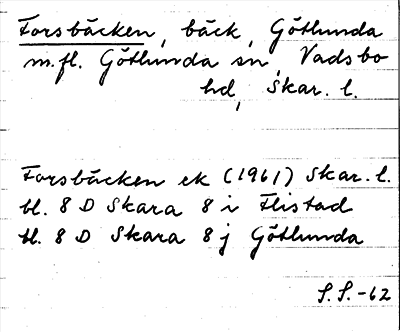 Forsbäcken, bäck, Götlunda
m.fl. Götlunda sn, Vadsbo
hd, Skar. l.
Forsbäcken ek (1961) Skar. l.
bl. 8 D Skara 8 i Flistad
bl. 8 D Skara 8 j Götlunda
S.S.-62